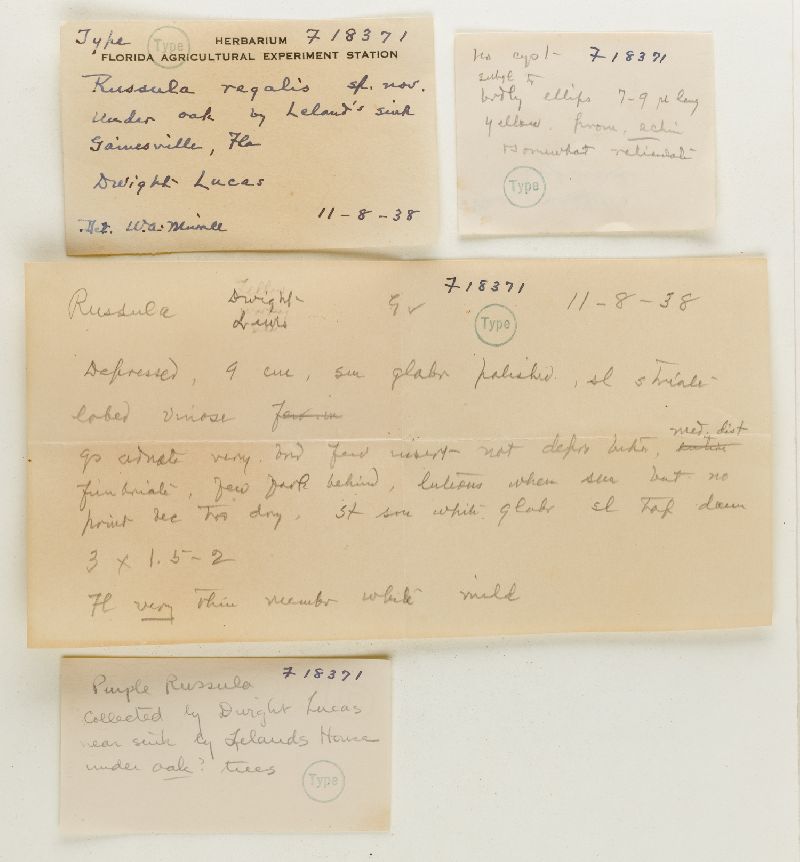 Type Type HERBARIUM F 18371
FLORIDA AGRICULTURAL EXPERIMENT STATION
Russula regalis sp. nov.
Under oak by Leland's sink
Gainesville, Fla
Dwight Lucas
11-8-38
Det. W.A. Murrill
no cyst F 18371
bdly ellips 7-9 µ long
yellow. prom. echin
somewhat reticulate
Type
Russula Dwight Gv F 18371 11-8-38
Lewis
Type
Depressed, 9 cm, sm glabr polished, sl striate
lobed vinose
med. dist
gs adnate very brd few insert not depr
fimbriate, few fork behind, luteous when sm but no
print bec too dry. St sm white glabr sl tap down
3 x 1.5-2
Fl very thin membr white mild
Purple Russula F 18371
Collected by Dwight Lucas
near sink by Lelands House
under oak? trees
Type